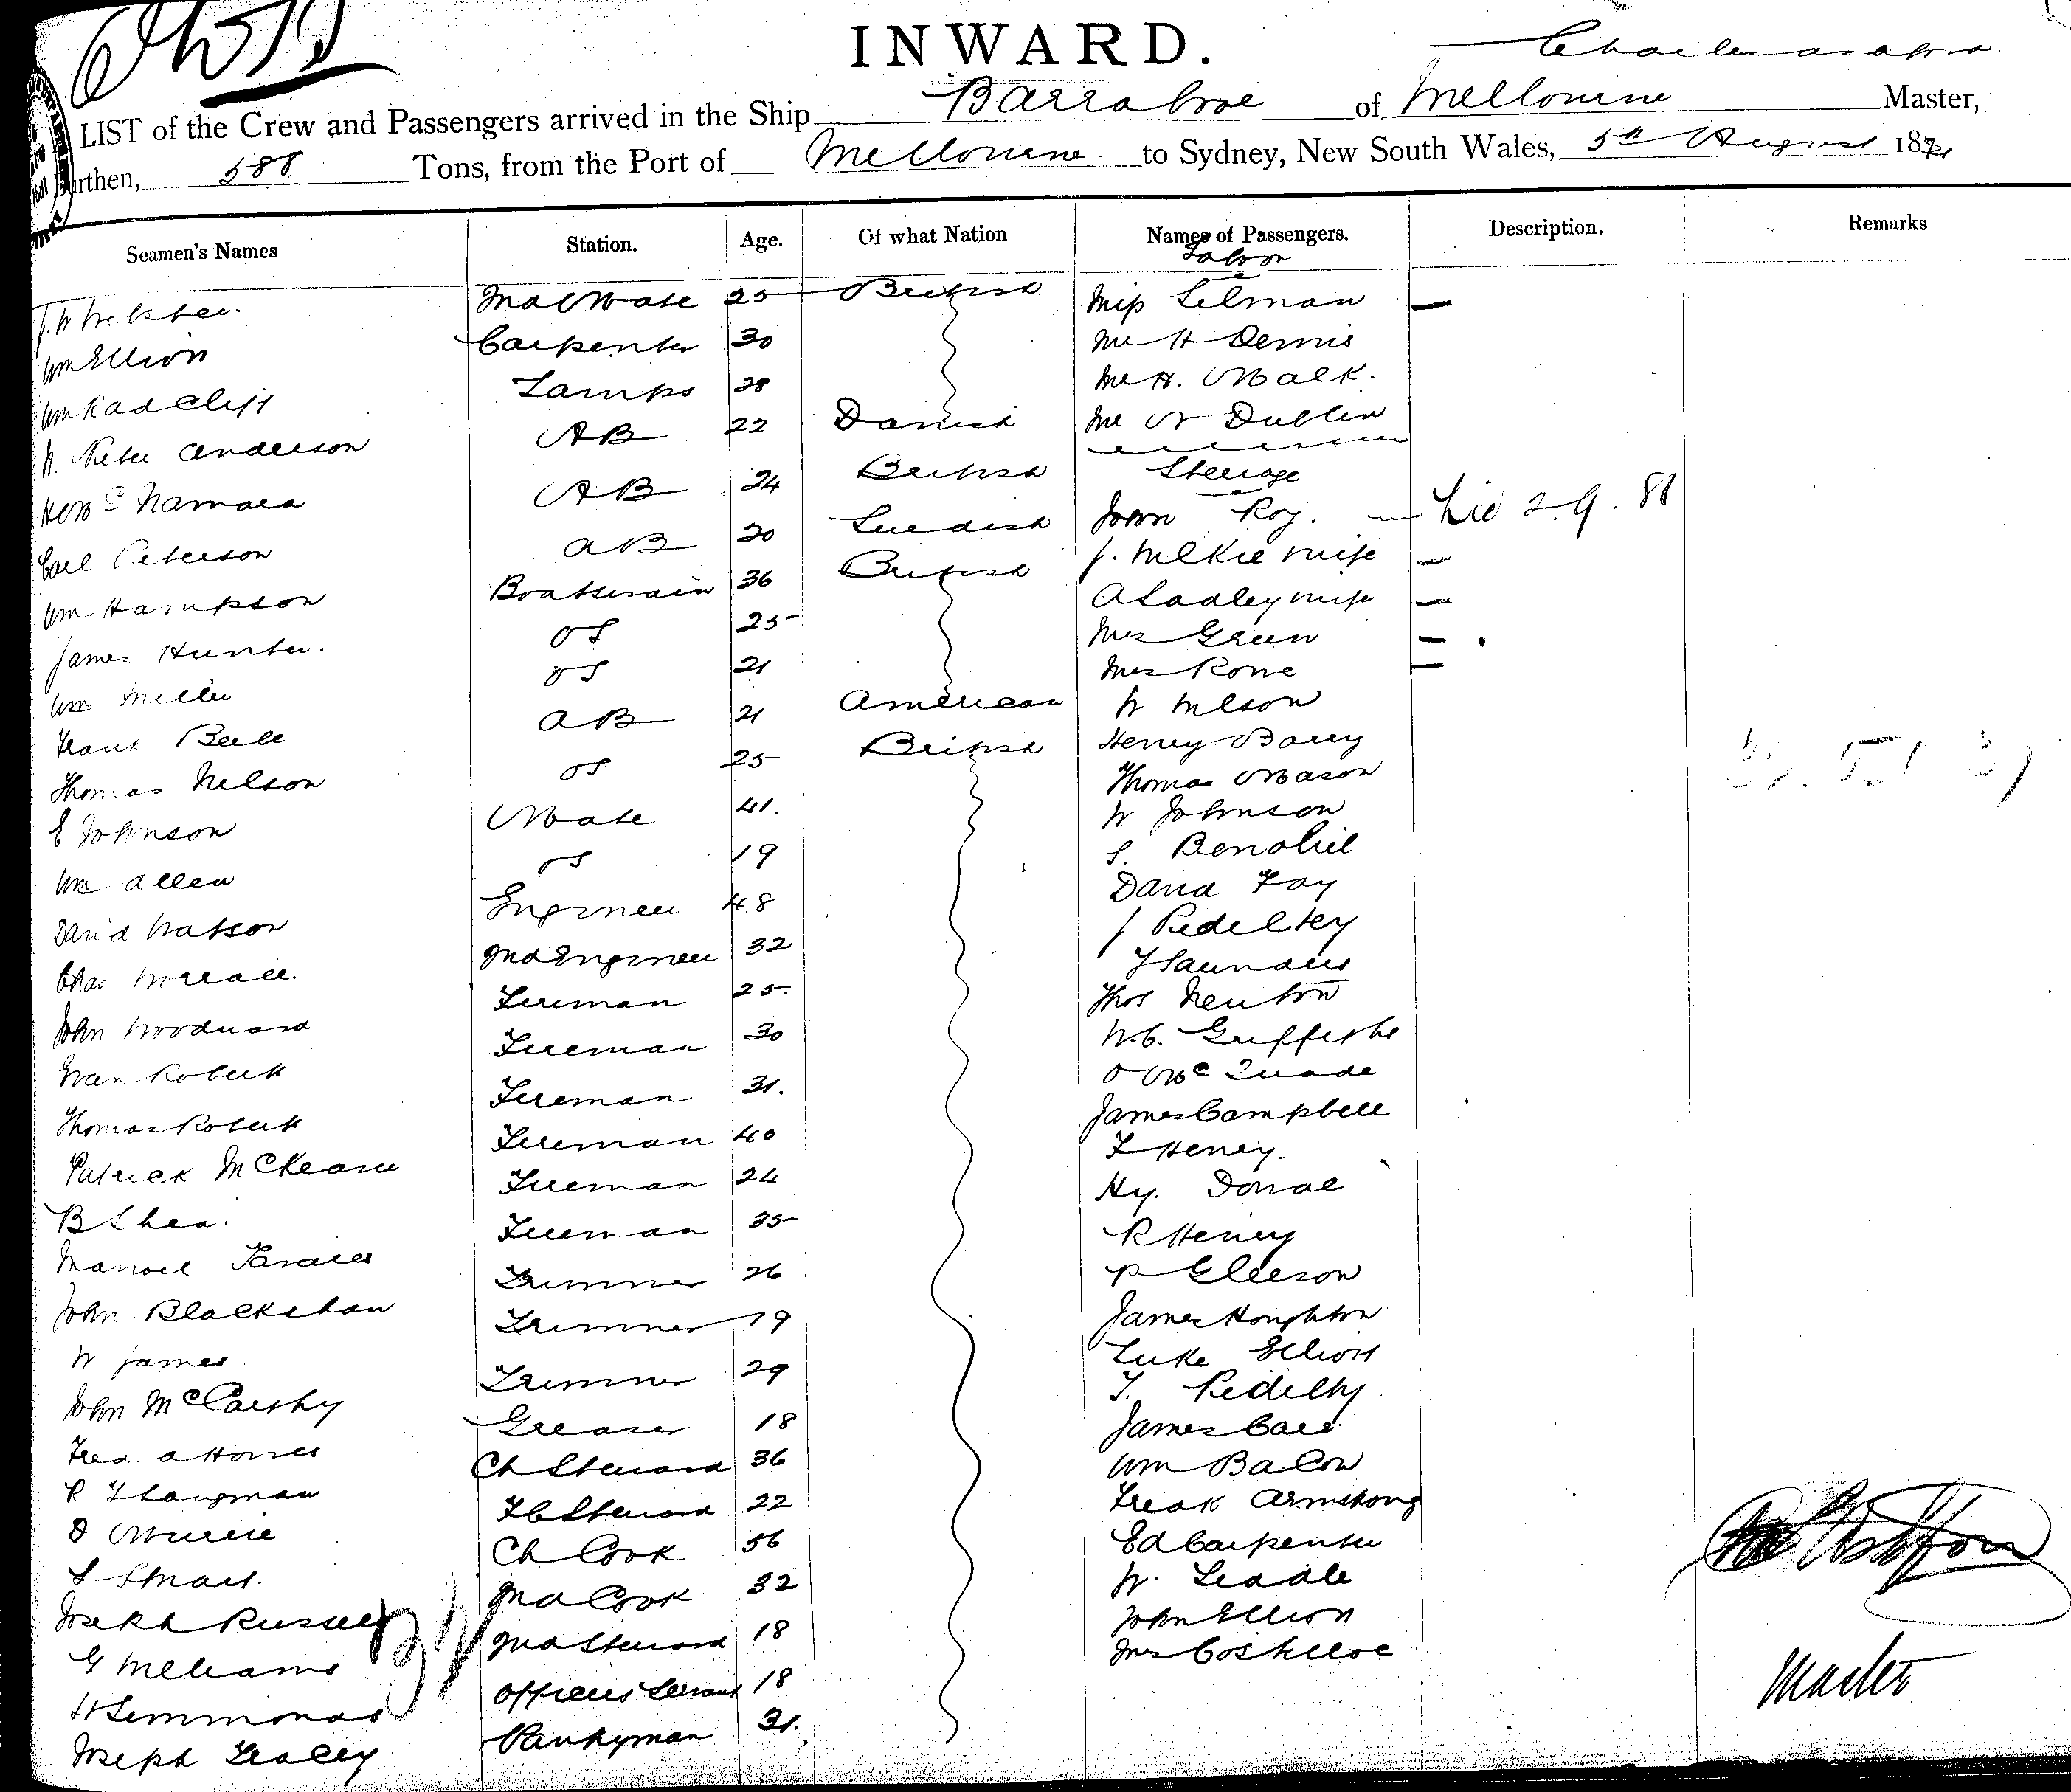 INWARD.
LIST of the Crew and Passengers arrived in the Ship Barrabool of Melbourne Master,
Burthen, 588 Tons, from the Port of Melbourne to Sydney, New South Wales, 5th August 187
Seamen's Names Station. Age. Of what Nation Names of Passengers. Description. Remarks
Saloon
J. W Webster 2nd Mate 25 British Miss Selman —
Wm Elliott Carpenter 30 Mr H Dennis
Wm Radcliff Lamps 28 Mr H.
N. Peter Anderson AB 22 Danish Mr Dublin
McNamara AB 24 British Steerage
Carl Peterson AB 20 Swedish John Roy. — 2.9.81
Wm Hampson Boatswain 36 British J. Wilkie wife —
James Hunter OS 25 A Sadley wife —
Wm Miller OS 21 Mrs Green —
Mrs Rowe —
Frank Bell AB 21 American W Wilson
Thomas Nelson OS 25 British Henry Barry
E Johnson Mate 41. Thomas Mason
W Johnson
Wm Allen OS 19 S. Benabil
David Watson Engineer 48 David Fay
Chas Worrall. 2nd Engineer 32 J Pedelty
J Saunders
John Woodward Fireman 25. Thos Newton
Evan Roberts Fireman 30 W.C. Griffiths
Thomas Roberts Fireman 31. O McQuade
Patrick McKearn Fireman 40 James Campbell
F Henry.
B Shea. Fireman 24 Hy.
Manoel Fireman 35 R Henry
John Blackshaw Trimmer 26 P Gleeson
W James Trimmer 19 James Houghton
Luke Elliott
John McCarthy Trimmer 29 T. Pedelty
Fred A Horner Greaser 18 James Carr
P T Langman Ch Steward 36 Wm Bacon
D Murrie F C Steward 22 Frank Armstrong
S Stuart. Ch Cook 56 Ed Carpenter
Joseph Russell 2nd Cook 32 W. Leddle
G Williams 2nd Steward 18 John Elliott
H Semmonds Officers Servant 18 Mrs Coskelloe
Joseph Lealey Pantryman 31.
Master